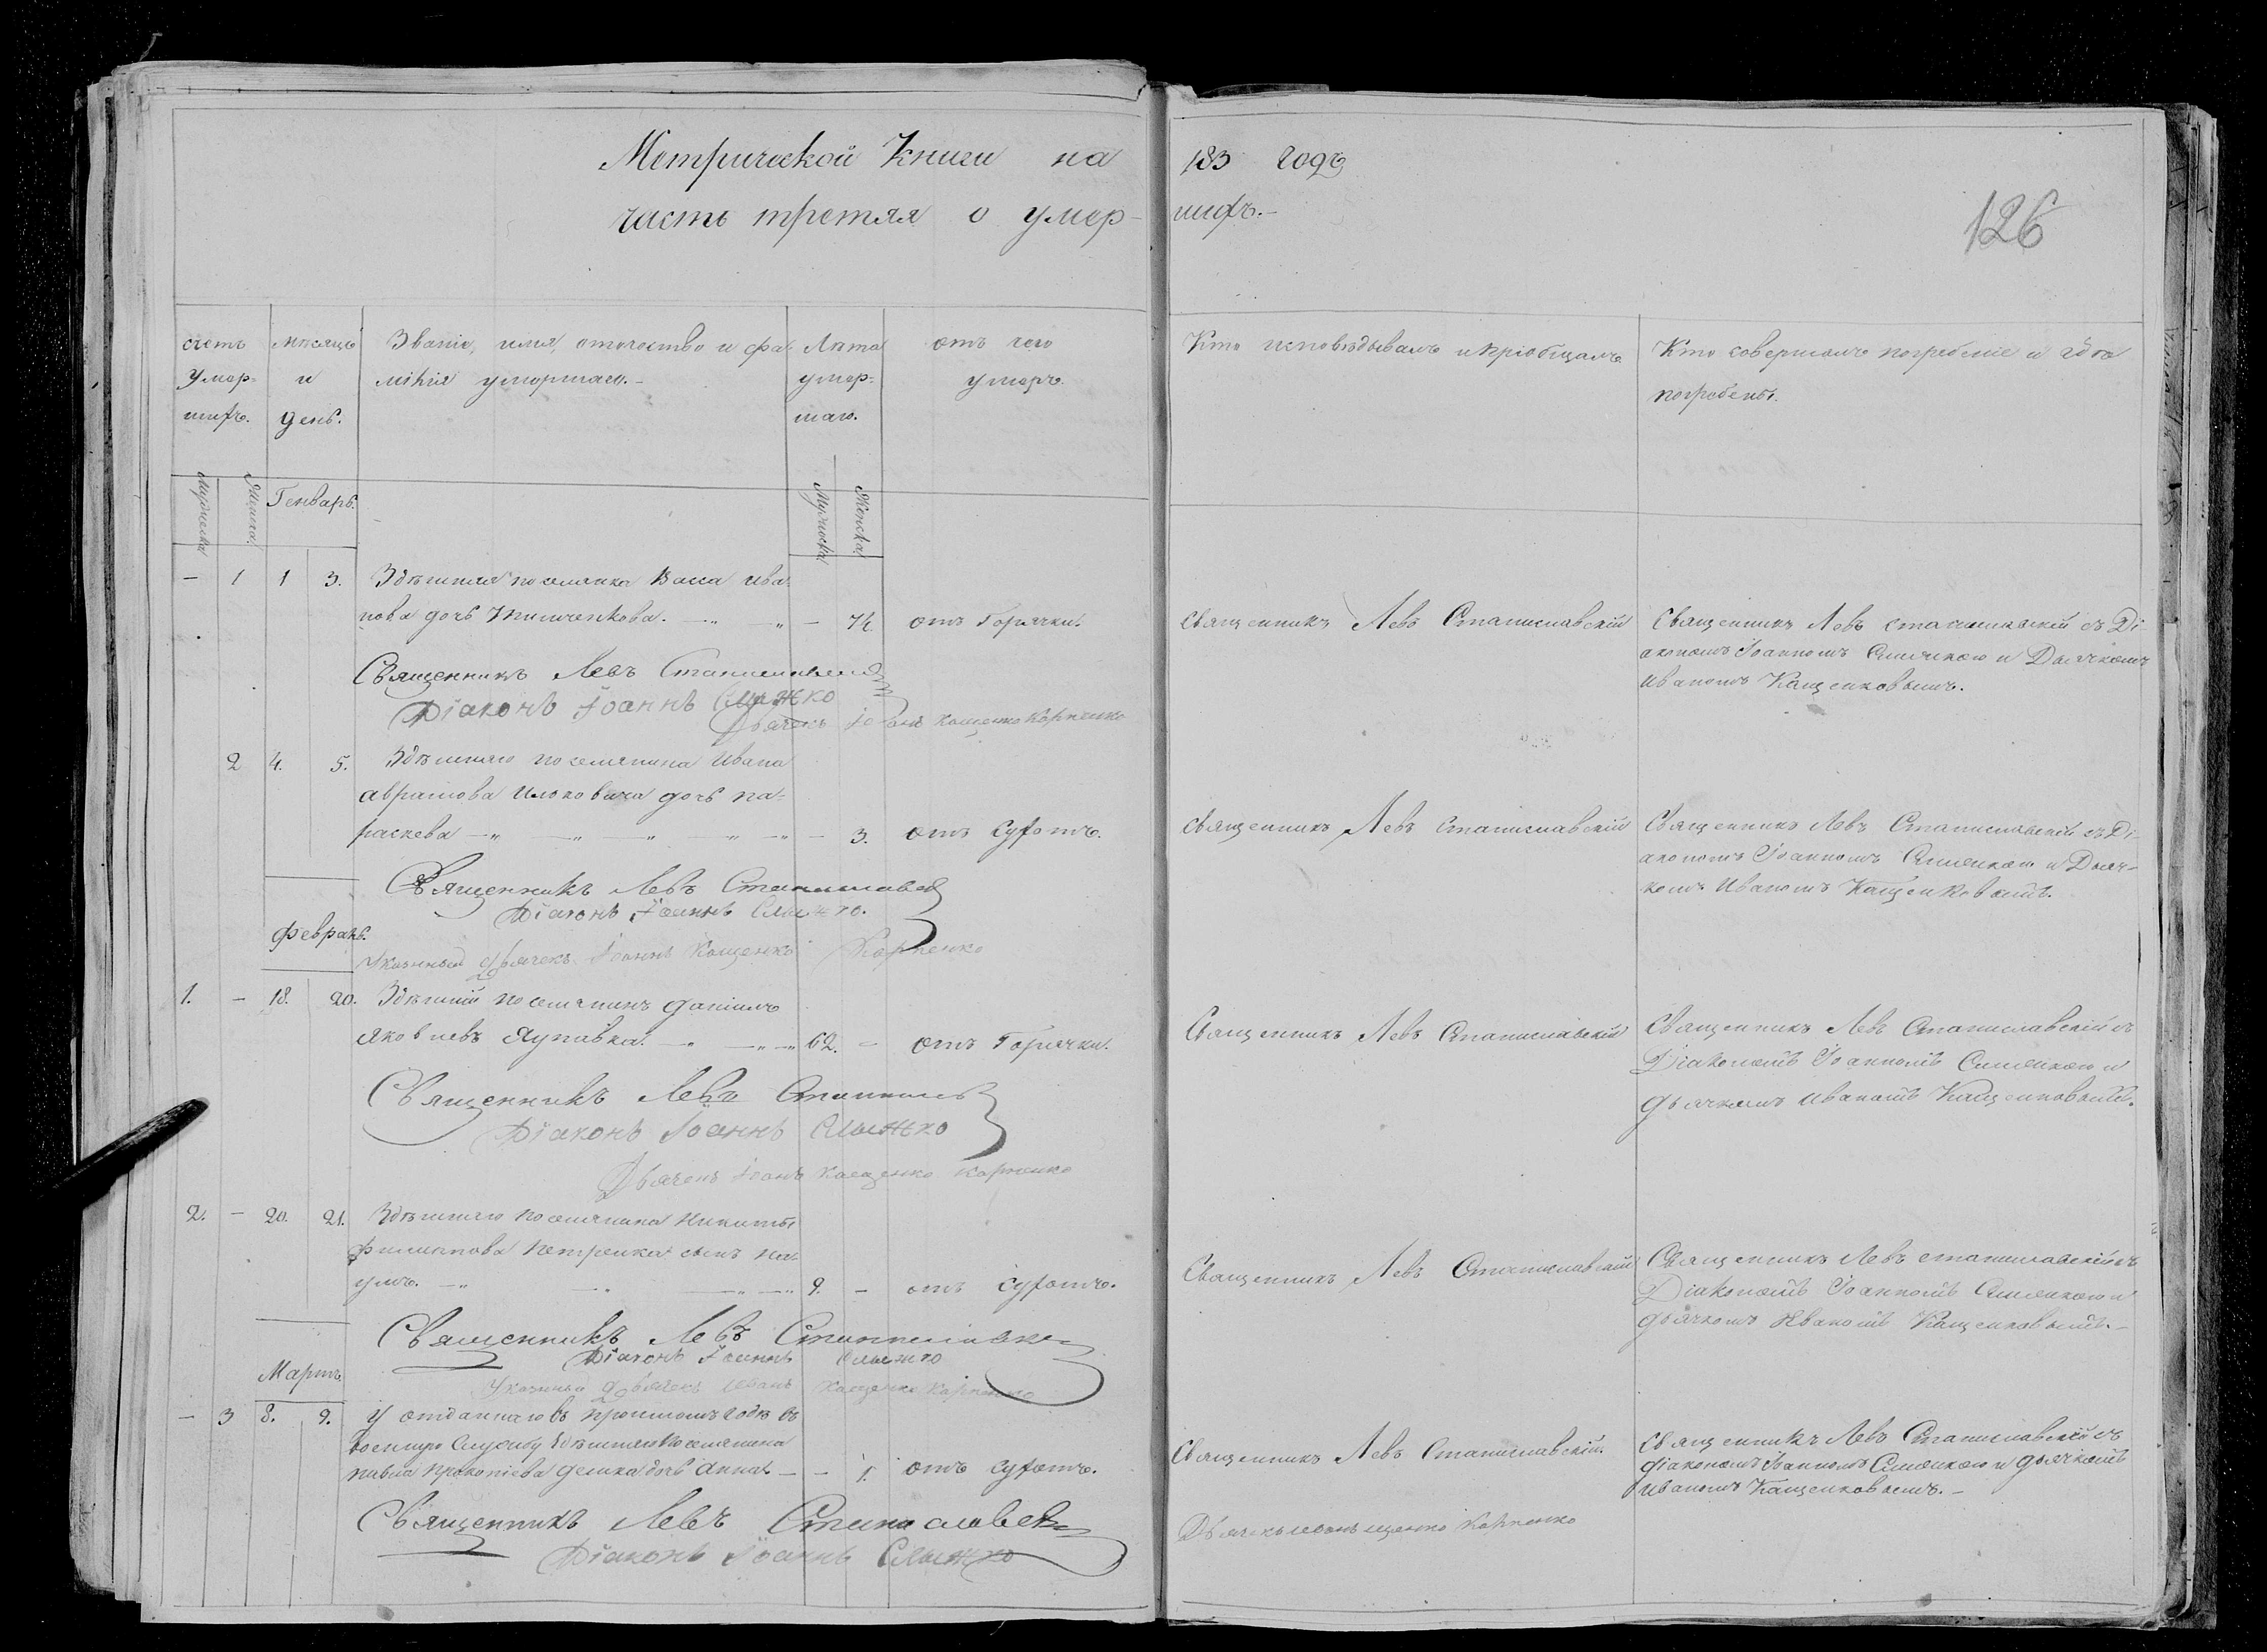 Метрической Книги на 183 годъ
часть третяя о умер-
шихъ.-
126
счетъ умер-
шихъ.
мѣсяцъ
и
день.
Званіе, имя, отечество и фа-
мілія умершаго.-
Лѣта
умер-
шаго.
отъ чего
умеръ.
Кто исповѣдывалъ и пріобщалъ
Кто совершалъ погребеніе и гдѣ
погребены.
Мужеска
Женска
Генварь.
Мужеска
Женска
- 1 1 3. Здѣшняя поселянка Васса Ива-
нова дочь
- 74. отъ Горячки.
Священникъ Левъ Станиславскій
Священникъ Левъ Станиславскій съ Ді-
акономъ Іоанномъ и Дьячкомъ
Иваномъ Кащенковымъ.
Священникъ Левъ Станиславскій
Діаконъ Іоаннъ Слыжко
Дьячекъ Іоанъ Кащенко Карпенко
2 4. 5. Здѣшняго поселянина Ивана
Аврамова дочь Па-
раскева
- 3. отъ Сухотъ.
Священникъ Левъ Станиславскій
Священникъ Левъ Станиславскій съ Ді-
акономъ Іоанномъ и Дьяч-
комъ Иваномъ Кащенковымъ.
Священникъ Левъ Станиславск
Діаконъ Іоаннъ Слыжко.
Указный Дьячекъ Іоаннъ Кащенко Карпенко
Февраль.
1. - 18. 20. Здѣшній поселянинъ Даніилъ
Яковлевъ
62. - отъ Горячки.
Священникъ Левъ Станиславскій
Священникъ Левъ Станиславскій съ
Діакономъ Іоанномъ и
дьячкомъ Иваномъ Кащенковымъ.
Священникъ Левъ Станислав
Діаконъ Іоаннъ Слыжко
Дьячекъ Іоанъ Кащенко Карпенко
2. - 20. 21. Здѣшняго поселянина Никиты
Филипова Петренка сынъ На-
умъ.
9. - отъ Сухотъ.
Священникъ Левъ Станиславскій
Священникъ Левъ Станиславскій съ
Діакономъ Іоанномъ и
дьячкомъ Иваномъ Кащенковымъ.-
Священникъ Левъ Станиславск
Діаконъ Іоаннъ Слыжко
Указный Дьячекъ Иванъ Кащенко Карпенко
Мартъ.
- 3 8. 9. У отданнаго въ прошломъ годѣ въ
военную Службу здѣшняго поселянина
Павла Прокопіева дочь Анна.
- 1. отъ Сухотъ.
Священникъ Левъ Станиславскій.
Священникъ Левъ Станиславскій съ
діакономъ Іоанномъ и дьячкомъ
Иваномъ Кащенковымъ.-
Священникъ Левъ Станиславск
Діаконъ Іоаннъ Слыжко
Дьячекъ Иванъ Карпенко